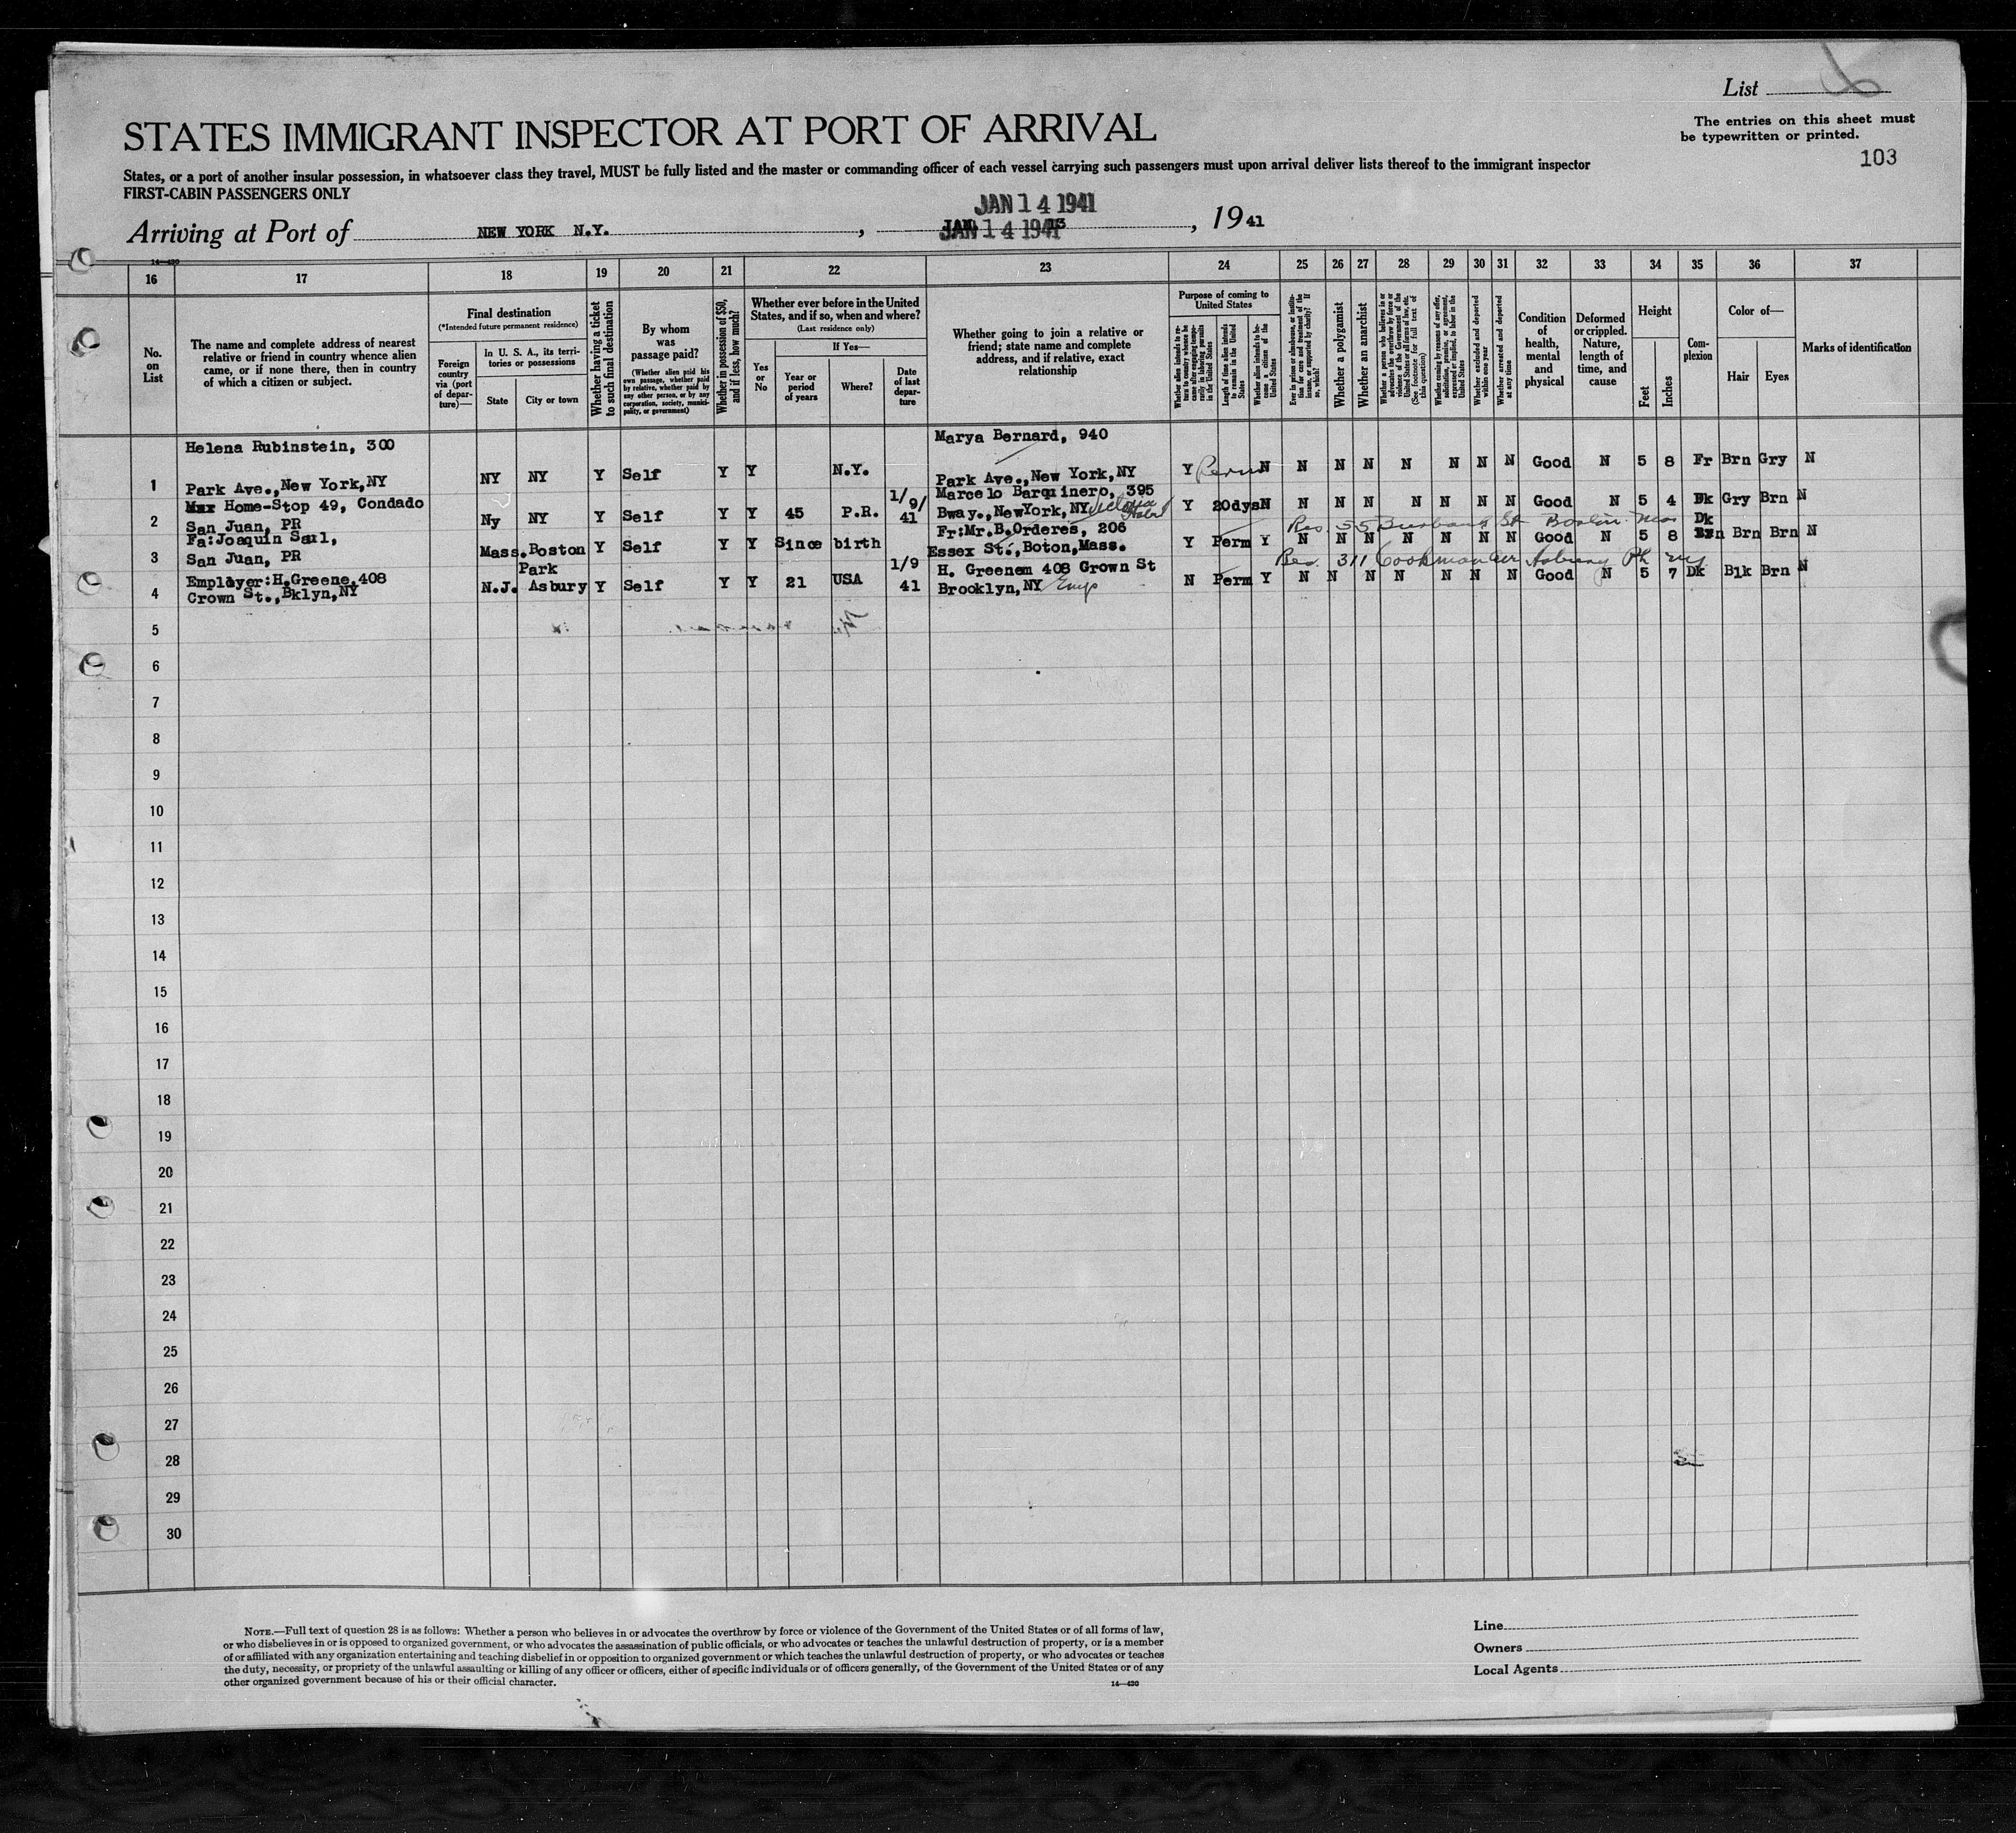 List
STATES IMMIGRANT INSPECTOR AT PORT OF ARRIVAL
The entries on this sheet must
be typewritten or printed.
103
States, or a port of another insular possession, in whatsoever class they travel, MUST be fully listed and the master or commanding officer of each vessel carrying such passengers must upon arrival deliver lists thereof to the immigrant inspector
FIRST-CABIN PASSENGERS ONLY
JAN 14 1941
Arriving at Port of NEW YORK N.Y. , JAN 14 1941 , 1941
14—430
16 17 18 19 20 21 22 23 24 25 26 27 28 29 30 31 32 33 34 35 36 37
No.
on
List
The name and complete address of nearest
relative or friend in country whence alien
came, or if none there, then in country
of which a citizen or subject.
Final destination
(*Intended future permanent residence)
Foreign
country
via (port
of depar-
ture)—
In U. S. A., its terri-
tories or possessions
State
City or town
Whether having a ticket
to such final destination
By whom
was
passage paid?
(Whether alien paid his
own passage, whether paid
by relative, whether paid by
any other person, or by any
corporation, society, munici-
pality, or government)
Whether in possession of $50,
and if less, how much?
Whether ever before in the United
States, and if so, when and where?
(Last residence only)
Yes
or
No
If Yes—
Year or
period
of years
Where?
Date
of last
depar-
ture
Whether going to join a relative or
friend; state name and complete
address, and if relative, exact
relationship
Purpose of coming to
United States
Whether alien intends to re-
turn to country whence he
came after engaging tempo-
rarily in laboring pursuits
in the United States
Length of time alien intends
to remain in the United
States
Whether alien intends to be-
come a citizen of the
United States
Ever in prison or almshouse, or institu-
tion for care and treatment of the
insane, or supported by charity? If
so, which?
Whether a polygamist
Whether an anarchist
Whether a person who believes in or
advocates the overthrow by force or
violence of the Government of the
United States or all forms of law, etc.
(See footnote for full text of
this question)
Whether coming by reasons of any offer,
solicitation, promise, or agreement,
expressed or implied, to labor in the
United States
Whether excluded and deported
within one year
Whether arrested and deported
at any time
Condition
of
health,
mental
and
physical
Deformed
or crippled.
Nature,
length of
time, and
cause
Height
Feet
Inches
Com-
plexion
Color of—
Hair
Eyes
Marks of identification
Helena Rubinstein, 300 Marya Bernard, 940
1 Park Ave.,New York,NY NY NY Y Self Y Y N.Y. Park Ave.,New York,NY Y Perm N N N N N N N N Good N 5 8 Fr Brn Gry N
Home-Stop 49, Condado 1/9/ Marcelo Barquinero, 395
2 San Juan, PR Ny NY Y Self Y Y 45 P.R. 41 Bway.,NewYork,NY Victoria Hotel Y 20dys N N N N N N N N Good N 5 4 Dk Gry Brn N
Fa:Joaquin Sarl, Fr:Mr.B.Orderes, 206 Res. 55 Burbank St Boston Mas Dk
3 San Juan, PR Mass. Boston Y Self Y Y Since birth Essex St., Boton,Mass. Y Perm Y N N N N N N N Good N 5 8 Brn Brn N
Park 1/9 H. Greenem 408 Crown St Res. 311 Cookman Av Asbury Pk NJ
4 Employer:H.Greene,408 Crown St.,Bklyn,NY N.J. Asbury Y Self Y Y 21 USA 41 Brooklyn,NY Emp N Perm Y N N N N N N N Good N 5 7 Dk Blk Brn N
5
6
7
8
9
10
11
12
13
14
15
16
17
18
19
20
21
22
23
24
25
26
27
28
29
30
NOTE.—Full text of question 28 is as follows: Whether a person who believes in or advocates the overthrow by force or violence of the Government of the United States or of all forms of law,
or who disbelieves in or is opposed to organized government, or who advocates the assassination of public officials, or who advocates or teaches the unlawful destruction of property, or is a member
of or affiliated with any organization entertaining and teaching disbelief in or opposition to organized government or which teaches the unlawful destruction of property, or who advocates or teaches
the duty, necessity, or propriety of the unlawful assaulting or killing of any officer or officers, either of specific individuals or of officers generally, of the Government of the United States or of any
other organized government because of his or their official character.
14—430
Line
Owners
Local Agents